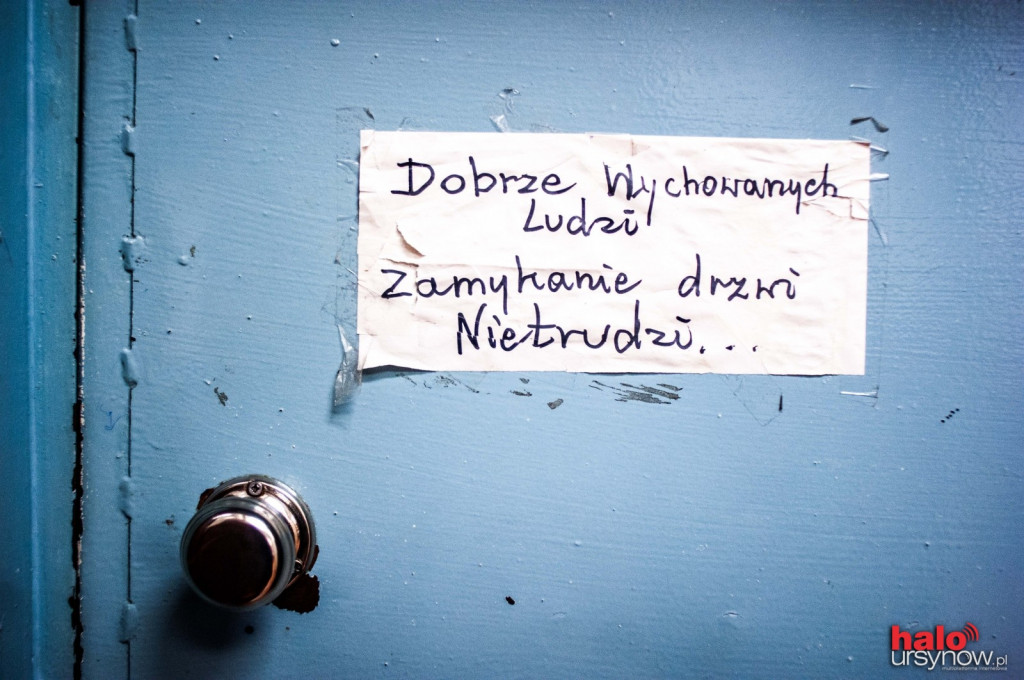 Dobrze Wychowanych
Ludzi
Zamykanie drzwi
Nietrudzi...
halo
ursynow.pl